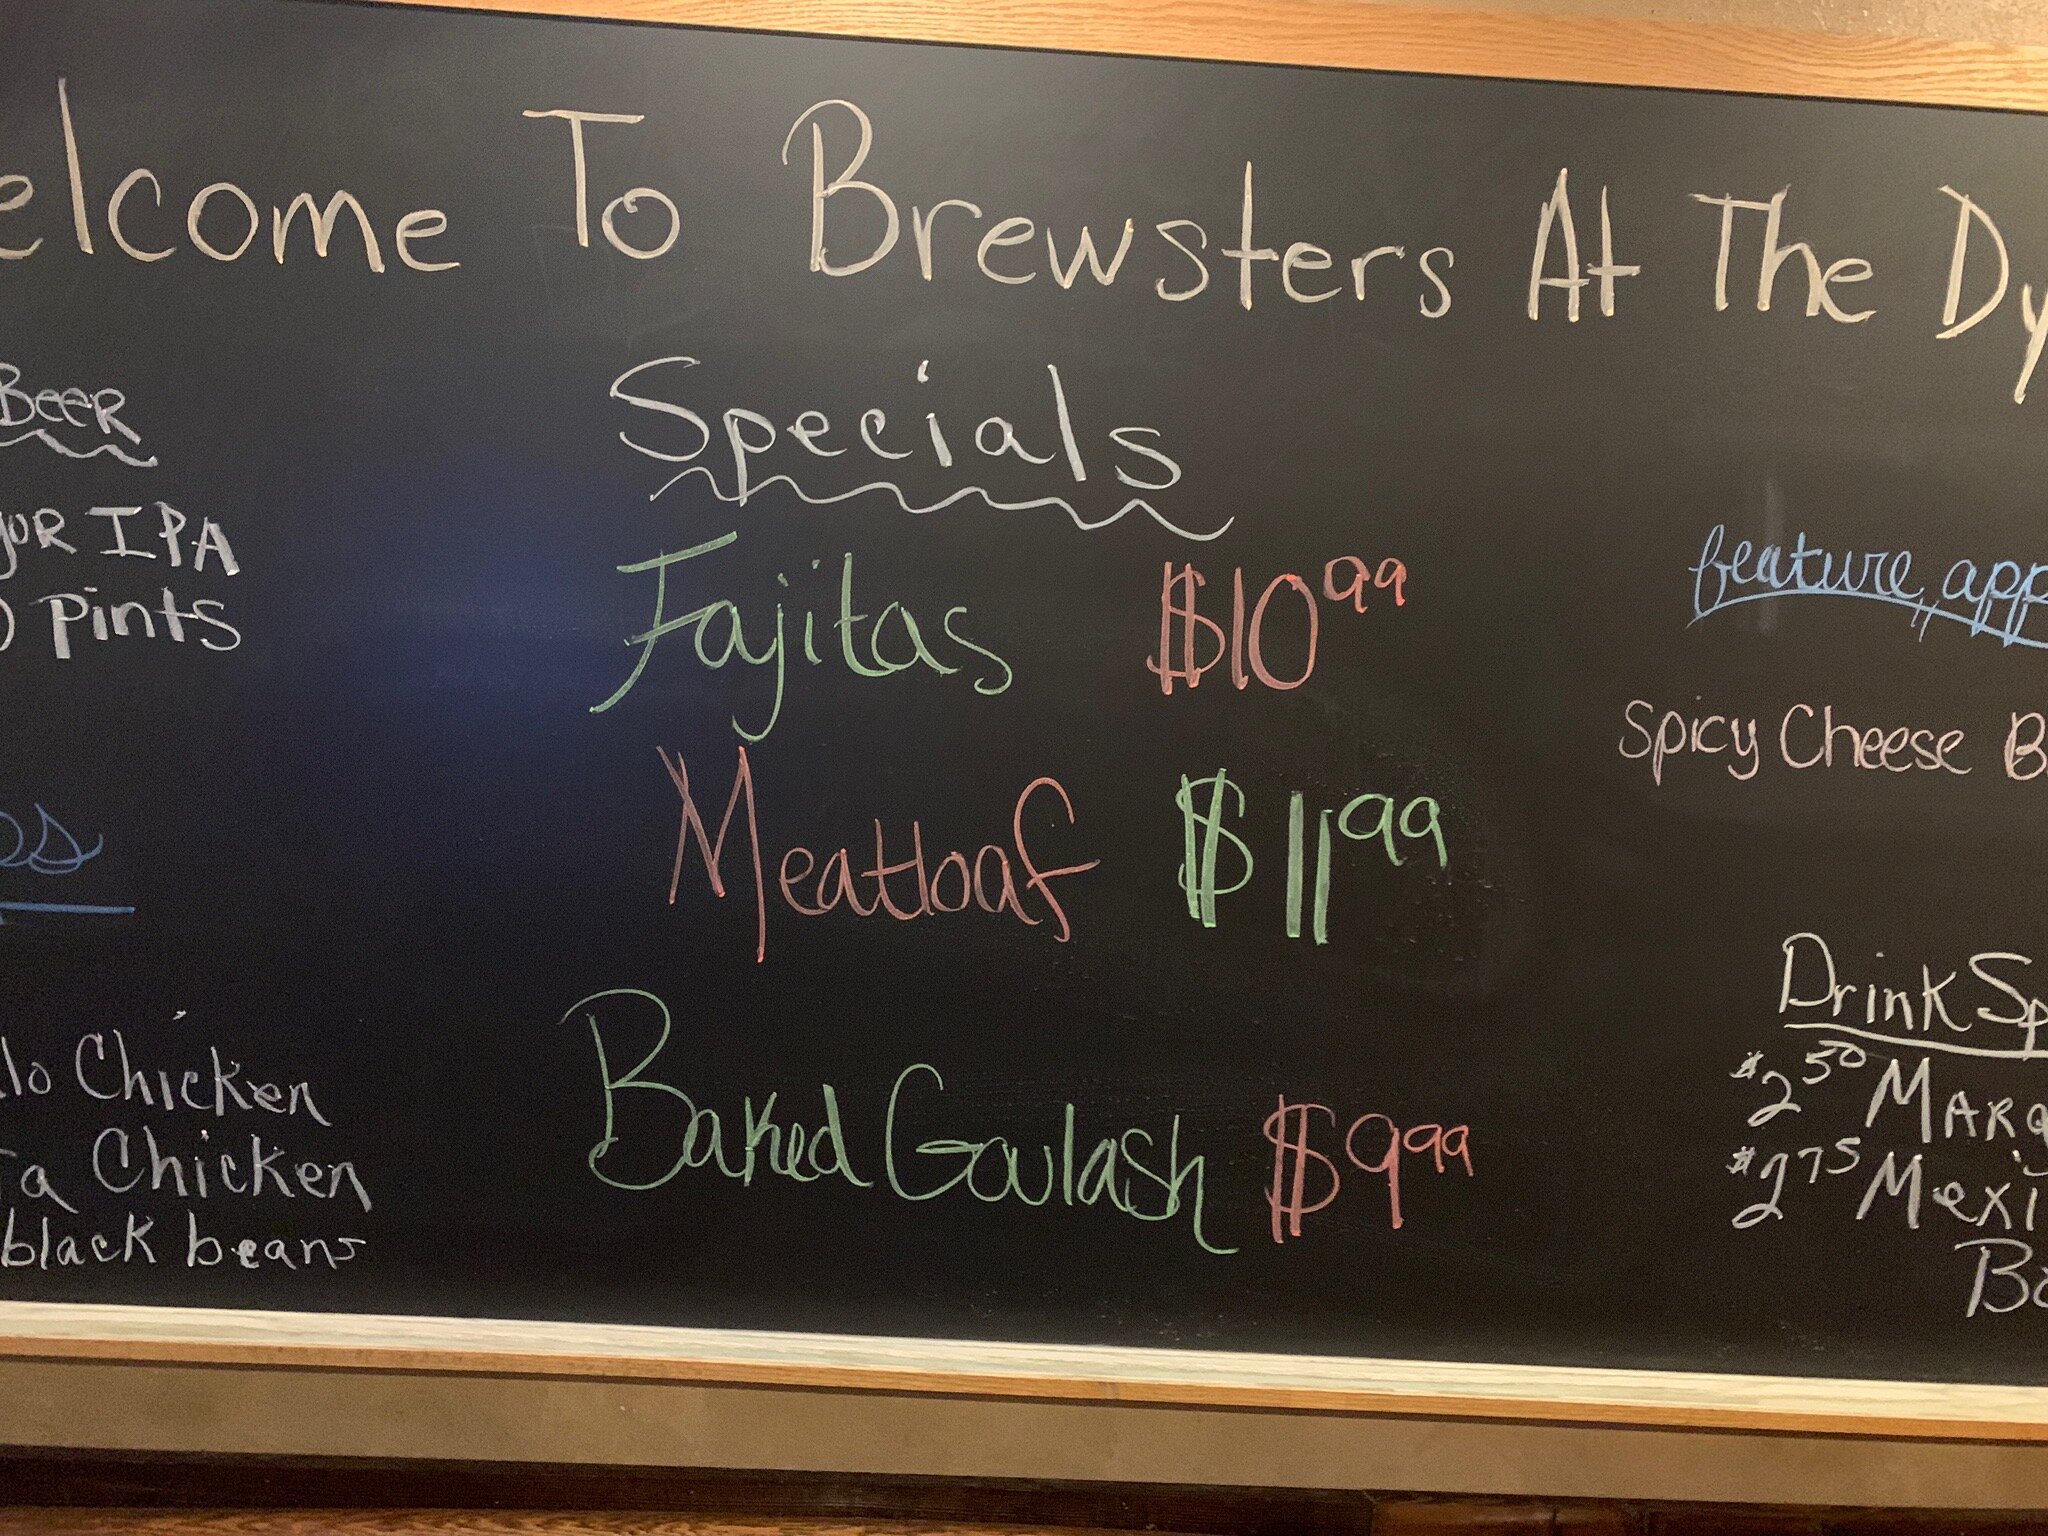 elcome To Brewsters At The Dy
Beer
IPA
Pints
lo Chicken
Chicken
black beans
Specials
Fajitas $10.99
Meatloaf $11.99
Baked Goulash $9.99
feature app
Spicy Cheese B
Drink Sp
$2.50 Marg
$2.75 Mexi
Bo